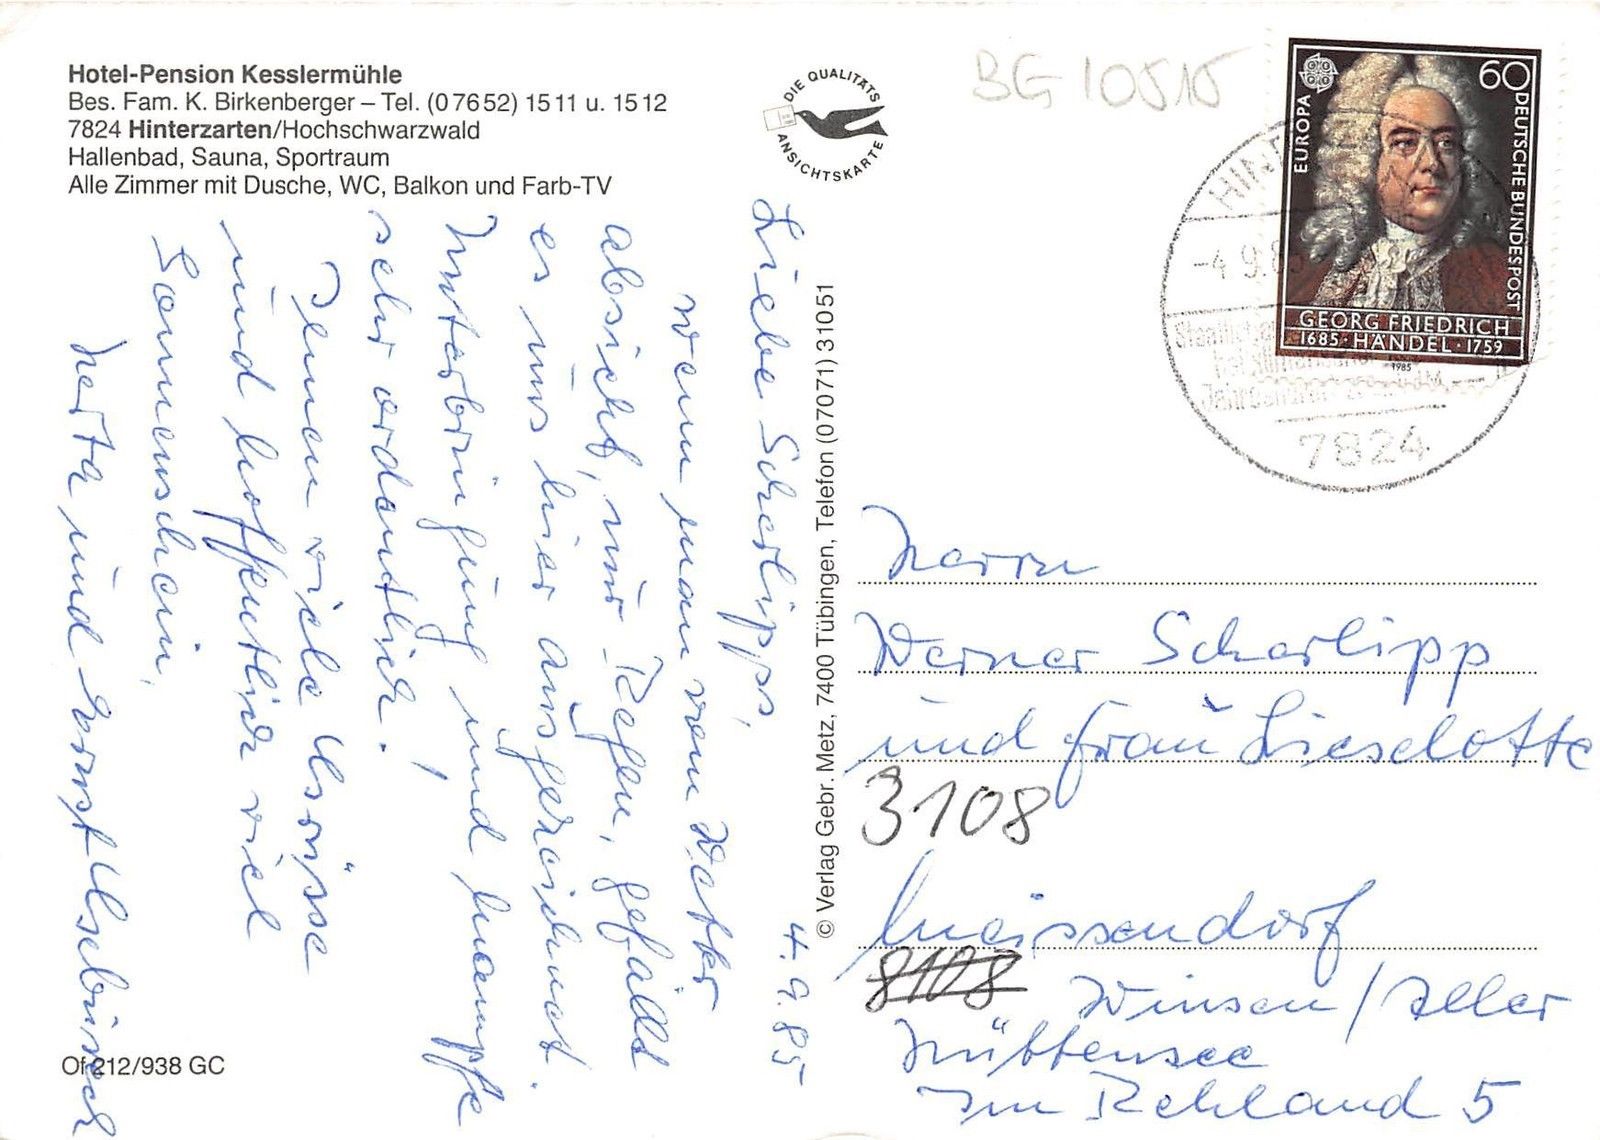 Hotel-Pension Kesslermühle
Bes. Fam. K. Birkenberger – Tel. (07652) 1511 u. 1512
7824 Hinterzarten/Hochschwarzwald
Hallenbad, Sauna, Sportraum
Alle Zimmer mit Dusche, WC, Balkon und Farb-TV
DIE QUALITÄTS
ANSICHTSKARTE
BG 10515
60
EUROPA
DEUTSCHE BUNDESPOST
GEORG FRIEDRICH
1685 · HÄNDEL · 1759
1985
HIN
-4.9.85
7824
4.9.85
Liebe Scharlipps,
wenn man vom Wetter
absieht, nur Regen, gefällt
es uns hier ausgezeichnet.
Unterbringung und
sehr ordentlich!
Ihnen viele Grüsse
und hoffentlich viel
Sonnenschein,
Herta und Ernst
© Verlag Gebr. Metz, 7400 Tübingen, Telefon (07071) 31051
Herrn
Werner Scharlipp
und Frau Lieselotte
3108
Meissendorf
8108 Winsen/Aller
Hüttensee
Im Rehland 5
Of 212/938 GC